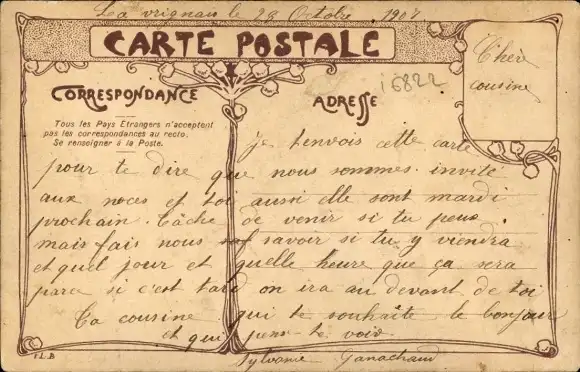 La vrignau le 28 Octobre 1907
CARTE POSTALE
Cher
cousine
16822
CORRESPONDANCE
ADRESSE
Tous les Pays Etrangers n'acceptent
pas les correspondances au recto.
Se renseigner à la Poste.
je t'envois cette carte
pour te dire que nous sommes invité
aux noces et toi aussi elle sont mardi
prochain. tâche de venir si tu peux
mais fais nous savoir si tu y viendra
et quel jour et quelle heure que ça sera
parce si c'est tard on ira au devant de toi
Ta cousine qui te souhaite le bonjour
et qui pens te voir
Sylvanie Ganachaud
F.L.B